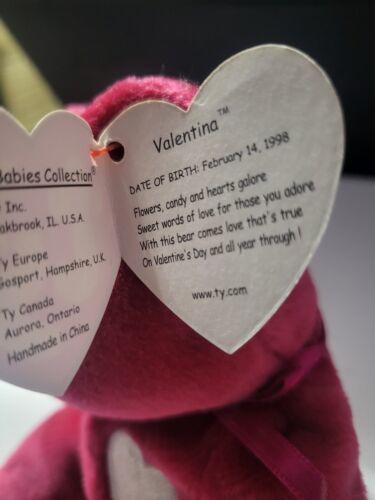 Babies Collection®
Inc.
akbrook, IL. U.S.A.
y Europe
Gosport, Hampshire, U.K.
Ty Canada
Aurora, Ontario
Handmade in China
Valentina™
DATE OF BIRTH: February 14, 1998
Flowers, candy and hearts galore
Sweet words of love for those you adore
With this bear comes love that's true
On Valentine's Day and all year through !
www.ty.com